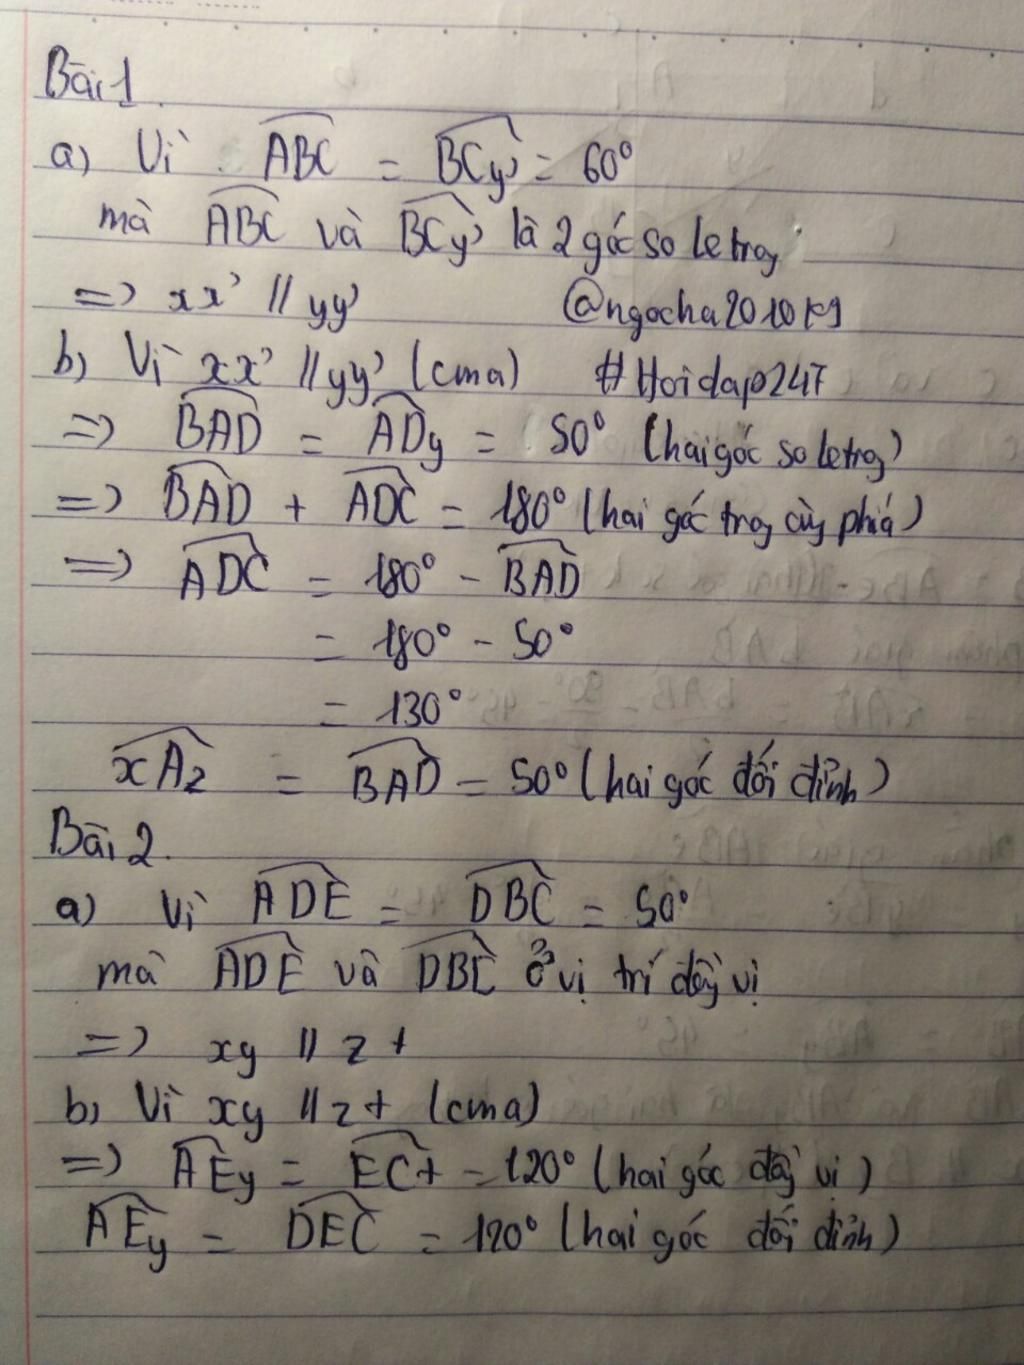 Bài 1
a) Vì ABC = BCy' = 60°
mà ABC và BCy' là 2 góc so le trog
=> xx' // yy' @ngocha2010kg
b) Vì xx' // yy' (cma) #Hoidap247
=> BAD = ADy = 50° (hai góc so le trog)
=> BAD + ADC = 180° (hai góc trog cùg phía)
=> ADC = 180° - BAD
= 180° - 50°
= 130°
xAz = BAD = 50° (hai góc đối đỉnh)
Bài 2.
a) Vì ADE = DBC = 50°
mà ADE và DBC ở vị trí đồg vị
=> xy // zt
b) Vì xy // zt (cma)
=> AEy = ECt = 120° (hai góc đồg vị)
AEy = DEC = 120° (hai góc đối đỉnh)